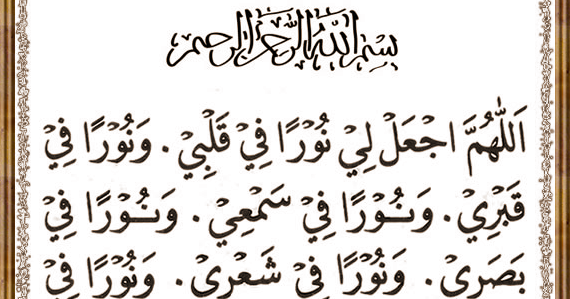 بسم الله الرحمن الرحيم
اَللّٰهُمَّ اجْعَلْ لِيْ نُوْرًا فِيْ قَلْبِيْ. وَنُوْرًا فِيْ
قَبْرِيْ. وَنُوْرًا فِيْ سَمْعِيْ. وَنُوْرًا فِيْ
بَصَرِيْ. وَنُوْرًا فِيْ شَعْرِيْ. وَنُوْرًا فِيْ